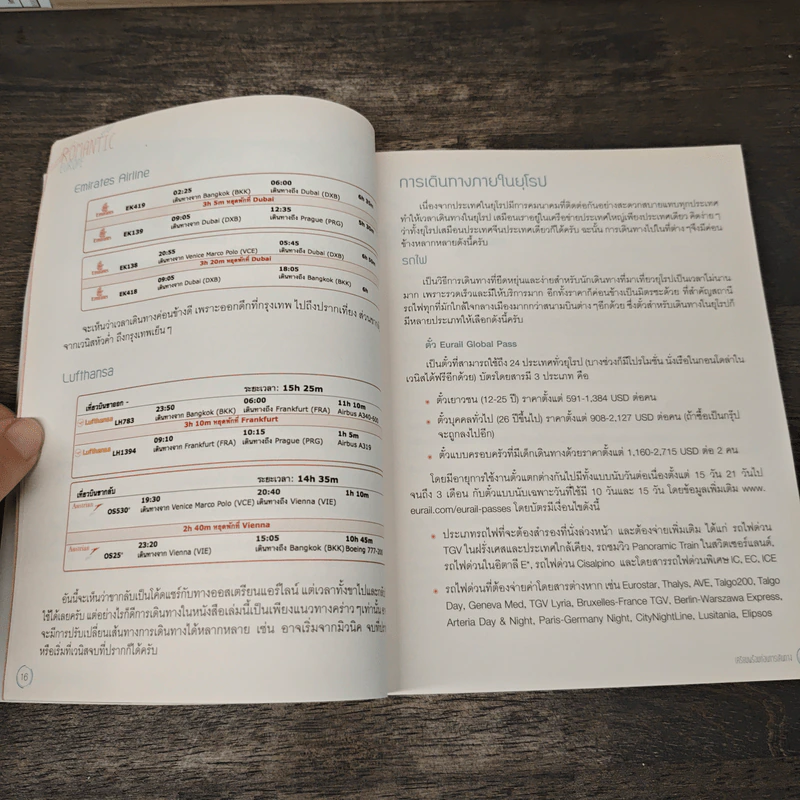 ROMANTIC
EUROPE
Emirates Airline
Emirates EK419 02:25 เดินทางจาก Bangkok (BKK) 06:00 เดินทางถึง Dubai (DXB)
3h 5m หยุดพักที่ Dubai
Emirates EK139 09:05 เดินทางจาก Dubai (DXB) 12:35 เดินทางถึง Prague (PRG)
Emirates EK138 20:55 เดินทางจาก Venice Marco Polo (VCE) 05:45 เดินทางถึง Dubai (DXB)
3h 20m หยุดพักที่ Dubai
Emirates EK418 09:05 เดินทางจาก Dubai (DXB) 18:05 เดินทางถึง Bangkok (BKK)
จะเห็นว่าเวลาเดินทางค่อนข้างดี เพราะออกดึกที่กรุงเทพ ไปถึงปรากเที่ยง
จากเวนิสหัวค่ำ ถึงกรุงเทพเย็น ๆ
Lufthansa
เที่ยวบินขาออก - ระยะเวลา: 15h 25m
Lufthansa LH783 23:50 เดินทางจาก Bangkok (BKK) 06:00 เดินทางถึง Frankfurt (FRA) 11h 10m Airbus A340-600
3h 10m หยุดพักที่ Frankfurt
Lufthansa LH1394 09:10 เดินทางจาก Frankfurt (FRA) 10:15 เดินทางถึง Prague (PRG) 1h 5m Airbus A319
เที่ยวบินขากลับ ระยะเวลา: 14h 35m
Austrian OS530* 19:30 เดินทางจาก Venice Marco Polo (VCE) 20:40 เดินทางถึง Vienna (VIE) 1h 10m
2h 40m หยุดพักที่ Vienna
Austrian OS25* 23:20 เดินทางจาก Vienna (VIE) 15:05 เดินทางถึง Bangkok (BKK) 10h 45m Boeing 777-200
อันนี้จะเห็นว่าขากลับเป็นโค้ดแชร์กับทางออสเตรียนแอร์ไลน์ แต่เวลาทั้งขาไปและ
ใช้ได้เลยครับ แต่อย่างไรก็ดีการเดินทางในหนังสือเล่มนี้เป็นเพียงแนวทางคร่าว ๆ
จะมีการปรับเปลี่ยนเส้นทางการเดินทางได้หลากหลาย เช่น อาจเริ่มจากมิวนิค
หรือเริ่มที่เวนิสจบที่ปรากก็ได้ครับ
16
การเดินทางภายในยุโรป
เนื่องจากประเทศในยุโรปมีการคมนาคมที่ติดต่อกันอย่างสะดวกสบายแทบทุกประเทศ
ทำให้เวลาเดินทางในยุโรป เสมือนเราอยู่ในเครือข่ายประเทศใหญ่เพียงประเทศเดียว คิดง่าย ๆ
ว่าทั้งยุโรปเสมือนประเทศจีนประเทศเดียวก็ได้ครับ ฉะนั้น การเดินทางไปในที่ต่าง ๆ จึงมีค่อน
ข้างหลากหลายดังนี้ครับ
รถไฟ
เป็นวิธีการเดินทางที่ยืดหยุ่นและง่ายสำหรับนักเดินทางที่มาเที่ยวยุโรปเป็นเวลาไม่นาน
มาก เพราะรวดเร็วและมีให้บริการมาก อีกทั้งราคาก็ค่อนข้างเป็นมิตรซะด้วย ที่สำคัญสถานี
รถไฟทุกที่มักใกล้ใจกลางเมืองมากกว่าสนามบินต่าง ๆ อีกด้วย ซึ่งตั๋วสำหรับเดินทางในยุโรปก็
มีหลายประเภทให้เลือกดังนี้ครับ
ตั๋ว Eurail Global Pass
เป็นตั๋วที่สามารถใช้ถึง 24 ประเทศทั่วยุโรป (บางช่วงก็มีโปรโมชั่น นั่งเรือในกอนโดล่าใน
เวนิสได้ฟรีอีกด้วย) บัตรโดยสารมี 3 ประเภท คือ
• ตั๋วเยาวชน (12-25 ปี) ราคาตั้งแต่ 591-1,384 USD ต่อคน
• ตั๋วบุคคลทั่วไป (26 ปีขึ้นไป) ราคาตั้งแต่ 908-2,127 USD ต่อคน (ถ้าซื้อเป็นกรุ๊ป
จะถูกลงไปอีก)
• ตั๋วแบบครอบครัวที่มีเด็กเดินทางด้วยราคาตั้งแต่ 1,160-2,715 USD ต่อ 2 คน
โดยมีอายุการใช้งานตั๋วแตกต่างกันไปมีทั้งแบบนับวันต่อเนื่องตั้งแต่ 15 วัน 21 วันไป
จนถึง 3 เดือน กับตั๋วแบบนับเฉพาะวันที่ใช้มี 10 วันและ 15 วัน โดยข้อมูลเพิ่มเติม www.
eurail.com/eurail-passes โดยบัตรมีเงื่อนไขดังนี้
• ประเภทรถไฟที่จะต้องสำรองที่นั่งล่วงหน้า และต้องจ่ายเพิ่มเติม ได้แก่ รถไฟด่วน
TGV ในฝรั่งเศสและประเทศใกล้เคียง, รถชมวิว Panoramic Train ในสวิตเซอร์แลนด์,
รถไฟด่วนในอิตาลี E*, รถไฟด่วน Cisalpino และโดยสารรถไฟด่วนพิเศษ IC, EC, ICE
• รถไฟด่วนที่ต้องจ่ายค่าโดยสารต่างหาก เช่น Eurostar, Thalys, AVE, Talgo200, Talgo
Day, Geneva Med, TGV Lyria, Bruxelles-France TGV, Berlin-Warszawa Express,
Arteria Day & Night, Paris-Germany Night, CityNightLine, Lusitania, Elipsos